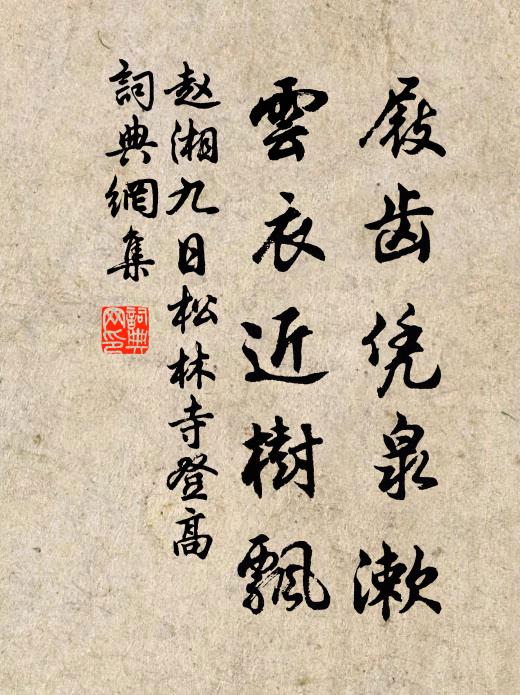 屐齿凭泉漱
雲衣近樹飄
赵湘九日松林寺登高
詞典網集
詞典
网印